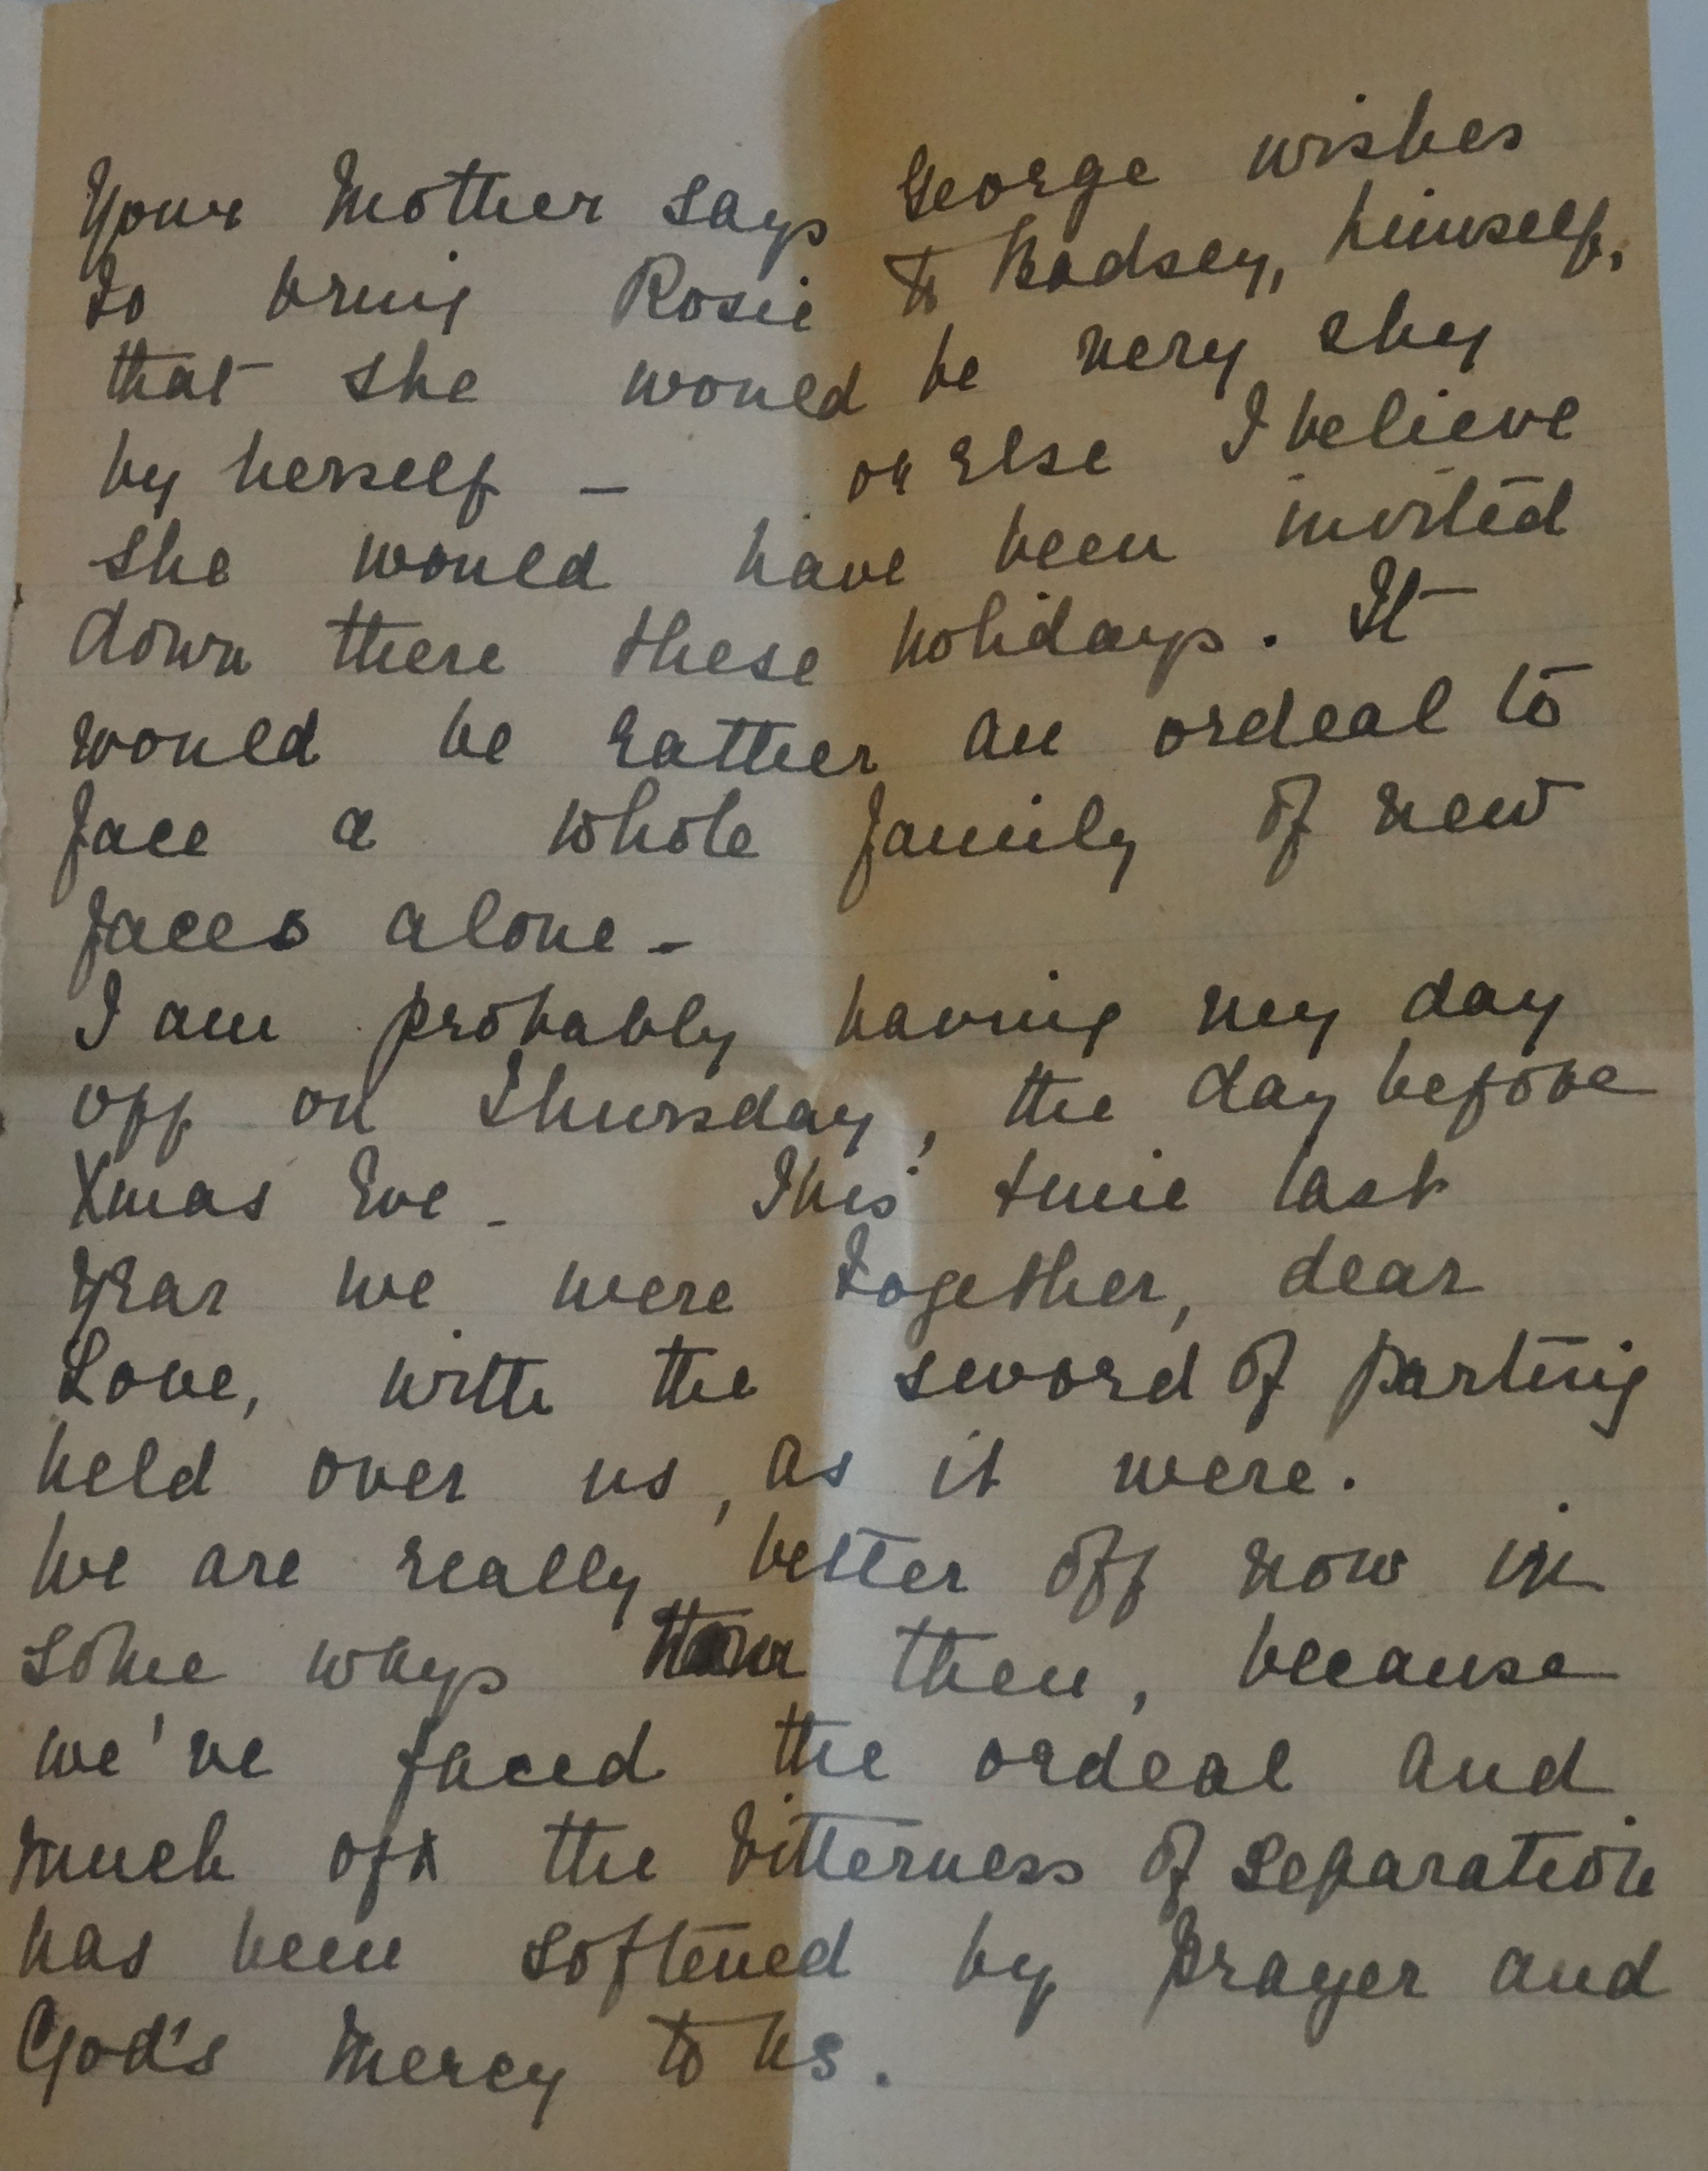 Your Mother says George wishes
to bring Rosie to Badsey, himself,
that she would be very shy
by herself – or else I believe
she would have been invited
down there these holidays. It
would be rather an ordeal to
face a whole family of new
faces alone –
I am probably having my day
off on Thursday, the day before
Xmas Eve – This time last
year we were together, dear
Love, with the sword of parting
held over us, as it were.
We are really better off now in
some ways than then, because
we've faced the ordeal and
much of the bitterness of separation
has been softened by prayer and
God's mercy to us.